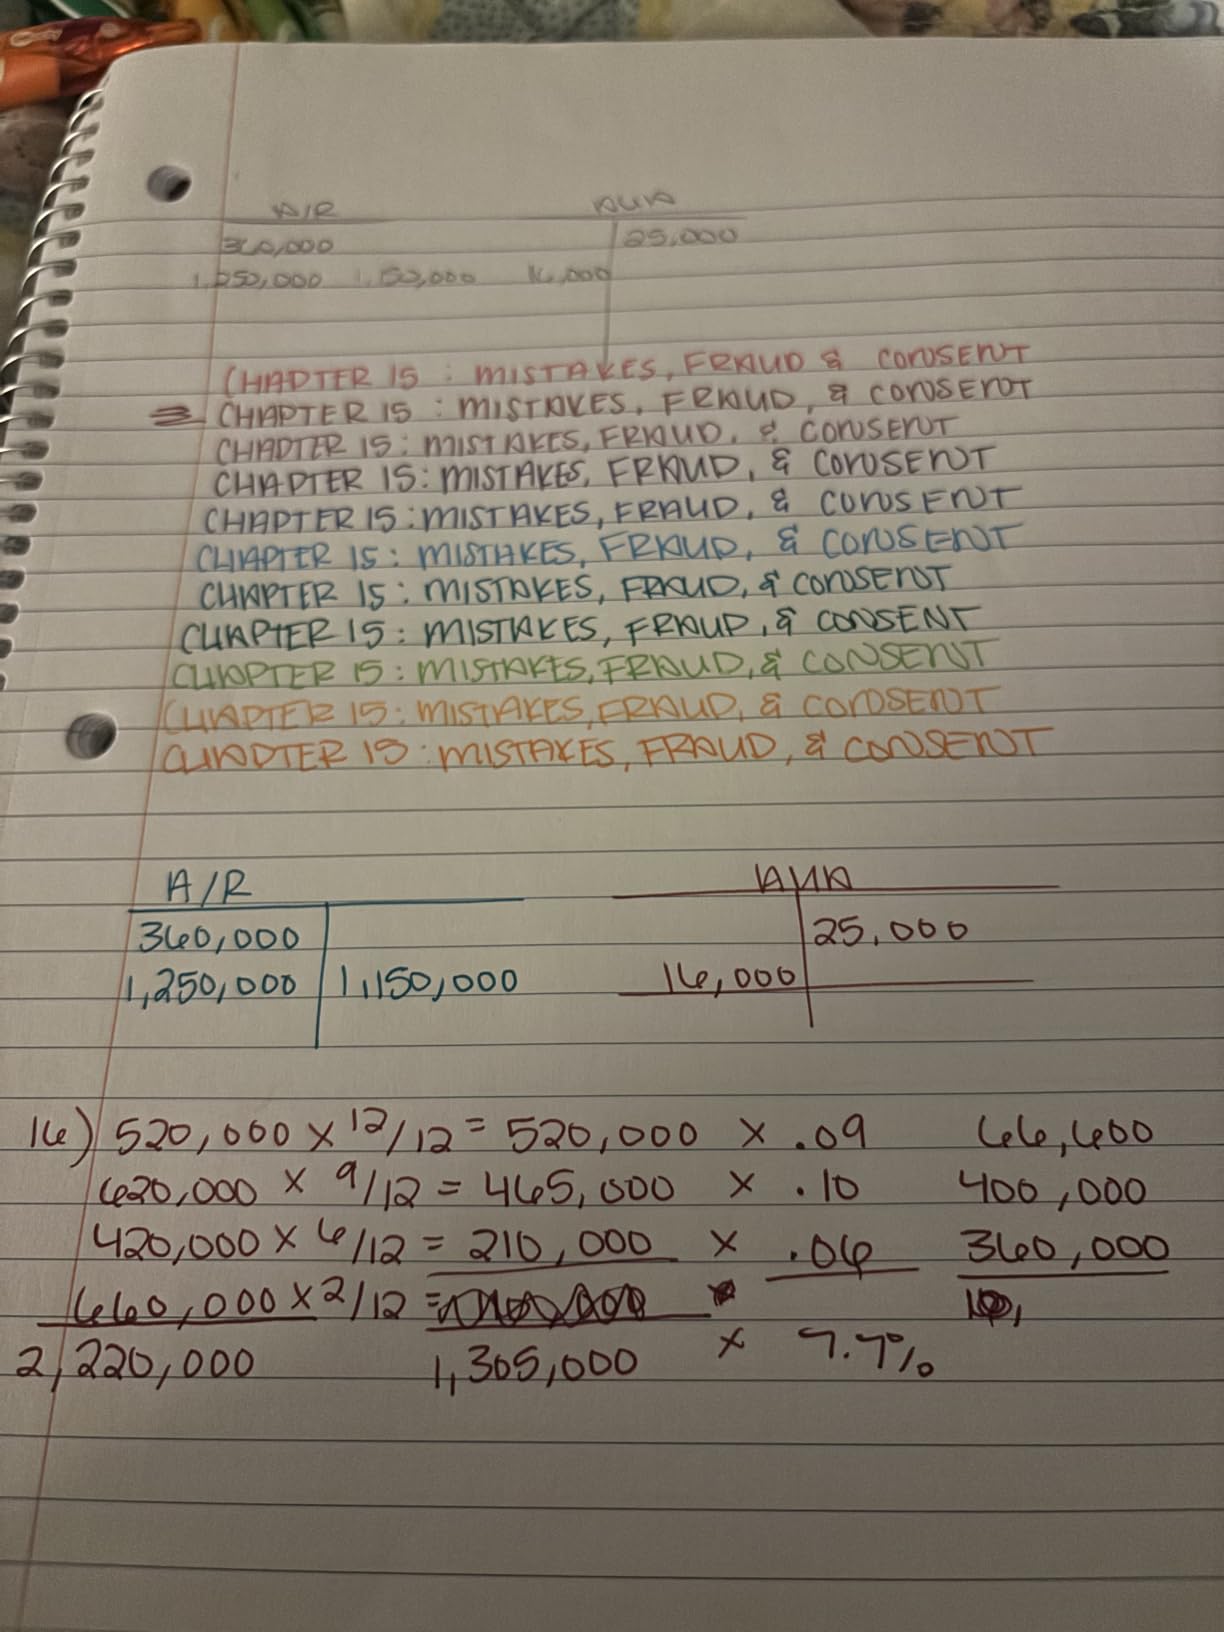 A/R AUA
360,000 25,000
1,250,000 1,150,000 16,000
CHAPTER 15 : MISTAKES, FRAUD & CONSENT
CHAPTER 15 : MISTAKES, FRAUD, & CONSENT
CHAPTER 15 : MISTAKES, FRAUD, & CONSENT
CHAPTER 15 : MISTAKES, FRAUD, & CONSENT
CHAPTER 15 : MISTAKES, FRAUD, & CONSENT
CHAPTER 15 : MISTAKES, FRAUD, & CONSENT
CHAPTER 15 : MISTAKES, FRAUD, & CONSENT
CHAPTER 15 : MISTAKES, FRAUD, & CONSENT
CHAPTER 15 : MISTAKES, FRAUD, & CONSENT
CHAPTER 15 : MISTAKES, FRAUD, & CONSENT
CHAPTER 15 : MISTAKES, FRAUD, & CONSENT
A/R AUA
360,000 25,000
1,250,000 1,150,000 16,000
16) 520,000 x 12/12 = 520,000 x .09 66,600
620,000 x 9/12 = 465,000 x .10 400,000
420,000 x 6/12 = 210,000 x .06 360,000
660,000 x 2/12 =
2,220,000 1,305,000 x 7.7%